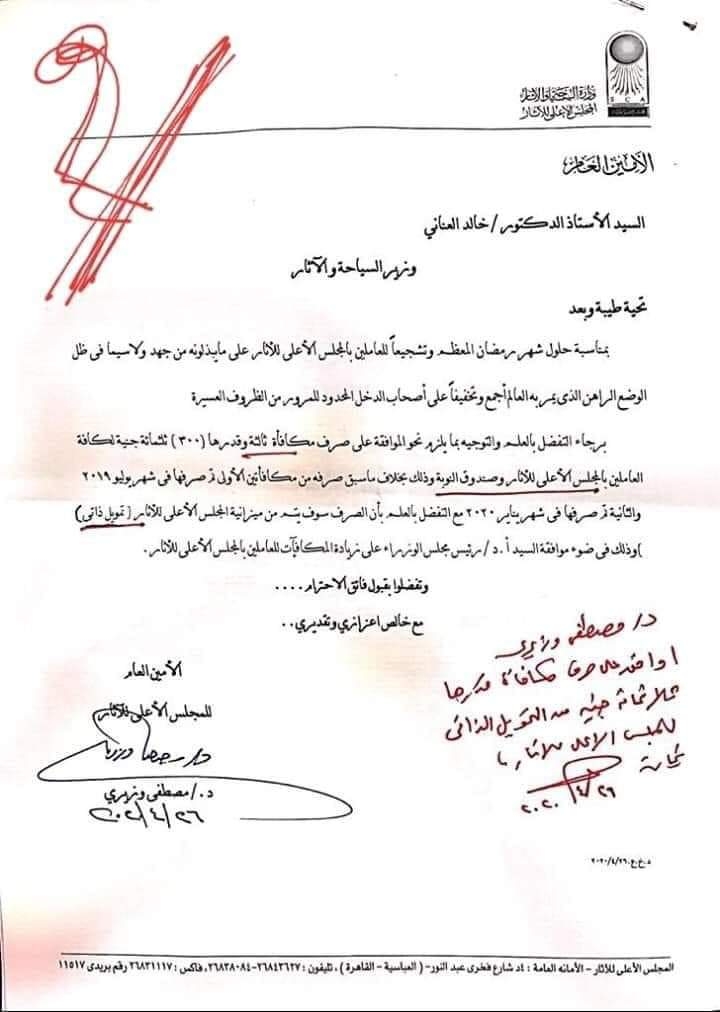 وزارة السياحة والآثار
المجلس الأعلى للآثار
SCA
الأمين العام
السيد الأستاذ الدكتور / خالد العناني
وزير السياحة والآثار
تحية طيبة وبعد
بمناسبة حلول شهر رمضان المعظم وتشجيعاً للعاملين بالمجلس الأعلى للآثار على مايبذلونه من جهد ولاسيما فى ظل
الوضع الراهن الذى يمر به العالم أجمع وتخفيفاً على أصحاب الدخل المحدود للمرور من الظروف العسيرة
برجاء التفضل بالعلم والتوجيه بما يلزم نحو الموافقة على صرف مكافأة ثالثة وقدرها (٣٠٠) ثلثمائة جنية لكافة
العاملين بالمجلس الأعلى للآثار وصندوق النوبة وذلك بخلاف ماسبق صرفه من مكافأتين الأولى تم صرفها فى شهر يوليو ٢٠١٩
والثانية تم صرفها فى شهر يناير ٢٠٢٠ مع التفضل بالعلم بأن الصرف سوف يتم من ميزانية المجلس الأعلى للآثار ( تمويل ذاتى )
)وذلك فى ضوء موافقة السيد أ.د/ رئيس مجلس الوزراء على زيادة المكافآت للعاملين بالمجلس الأعلى للآثار .
وتفضلوا بقبول فائق الاحترام ....
مع خالص اعزازي وتقديري ..
د/ مصطفى وزيرى
اوافق على صرف مكافأة قدرها
ثلاثمائة جنيه من التمويل الذاتى
للمجلس الاعلى للاثار
٢٦/٤/٢٠٢٠
الأمين العام
للمجلس الأعلى للآثار
د./ مصطفى وزيري
٢٦/٤/٢٠٢٠
د.خ.ع ٢٠٢٠/٤/٢٦
المجلس الأعلى للآثار – الأمانه العامة : ٤د شارع فخرى عبد النور- ( العباسية – القاهرة ) ، تليفون : ٢٦٨٤٣٦٢٧-٢٦٨٣٨٠٨٤ ، فاكس : ٢٦٨٣١١١٧ رقم بريدى ١١٥١٧